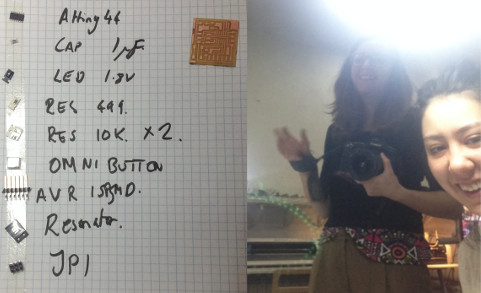 Attiny 44
CAP 1µF
LED 1.8V
RES 499.
RES 10K. x 2.
OMNI BUTTON
AVR ISPSMD.
Resonator.
JP1